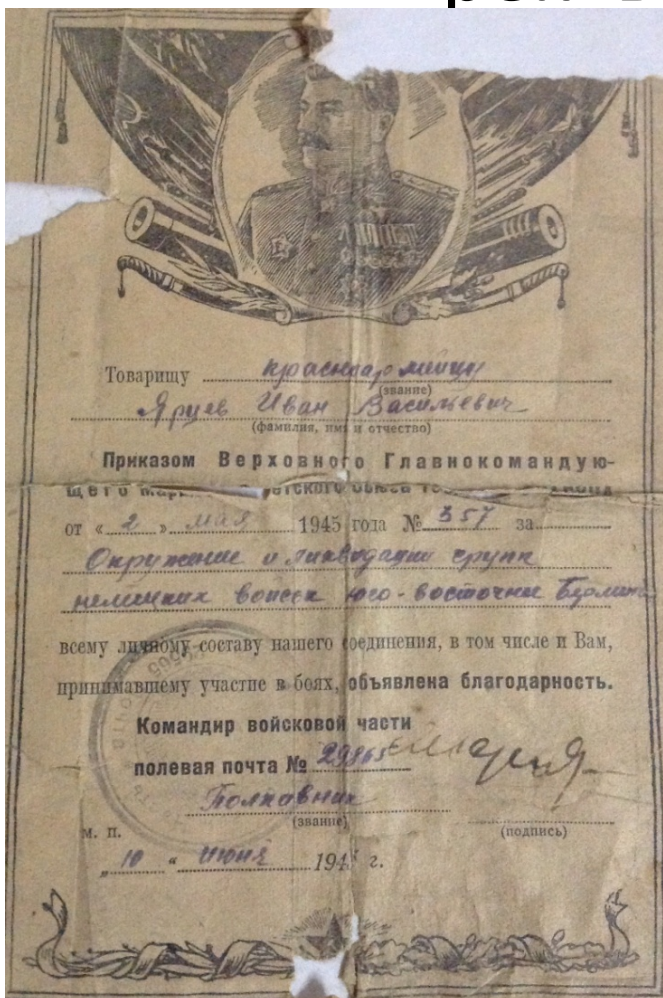 Товарищу красноармейцу
(звание)
Ярцев Иван Васильевич
(фамилия, имя и отчество)
Приказом Верховного Главнокомандую-
щего Союза
от « 2 » мая 1945 года № 357 за
Окружение и ликвидацию групп
немецких войск юго-восточнее Берлина
всему личному составу нашего соединения, в том числе и Вам,
принимавшему участие в боях, объявлена благодарность.
Командир войсковой части
полевая почта № 29865
Полковник
(звание)
(подпись)
м. п.
„ 10 “ июня 194 г.